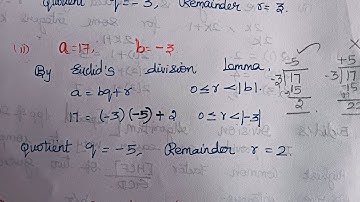 Quotient q = -3, Remainder r = 3.
(ii) a = 17, b = -3
By Euclid's division Lemma,
a = bq + r 0 ≤ r < |b|.
17 = (-3)(-5) + 2 0 ≤ r < |-3|
Quotient q = -5, Remainder r = 2.
-5 ✓
-3 | 17
-15
2
+5 ×
-3 | 17
-15